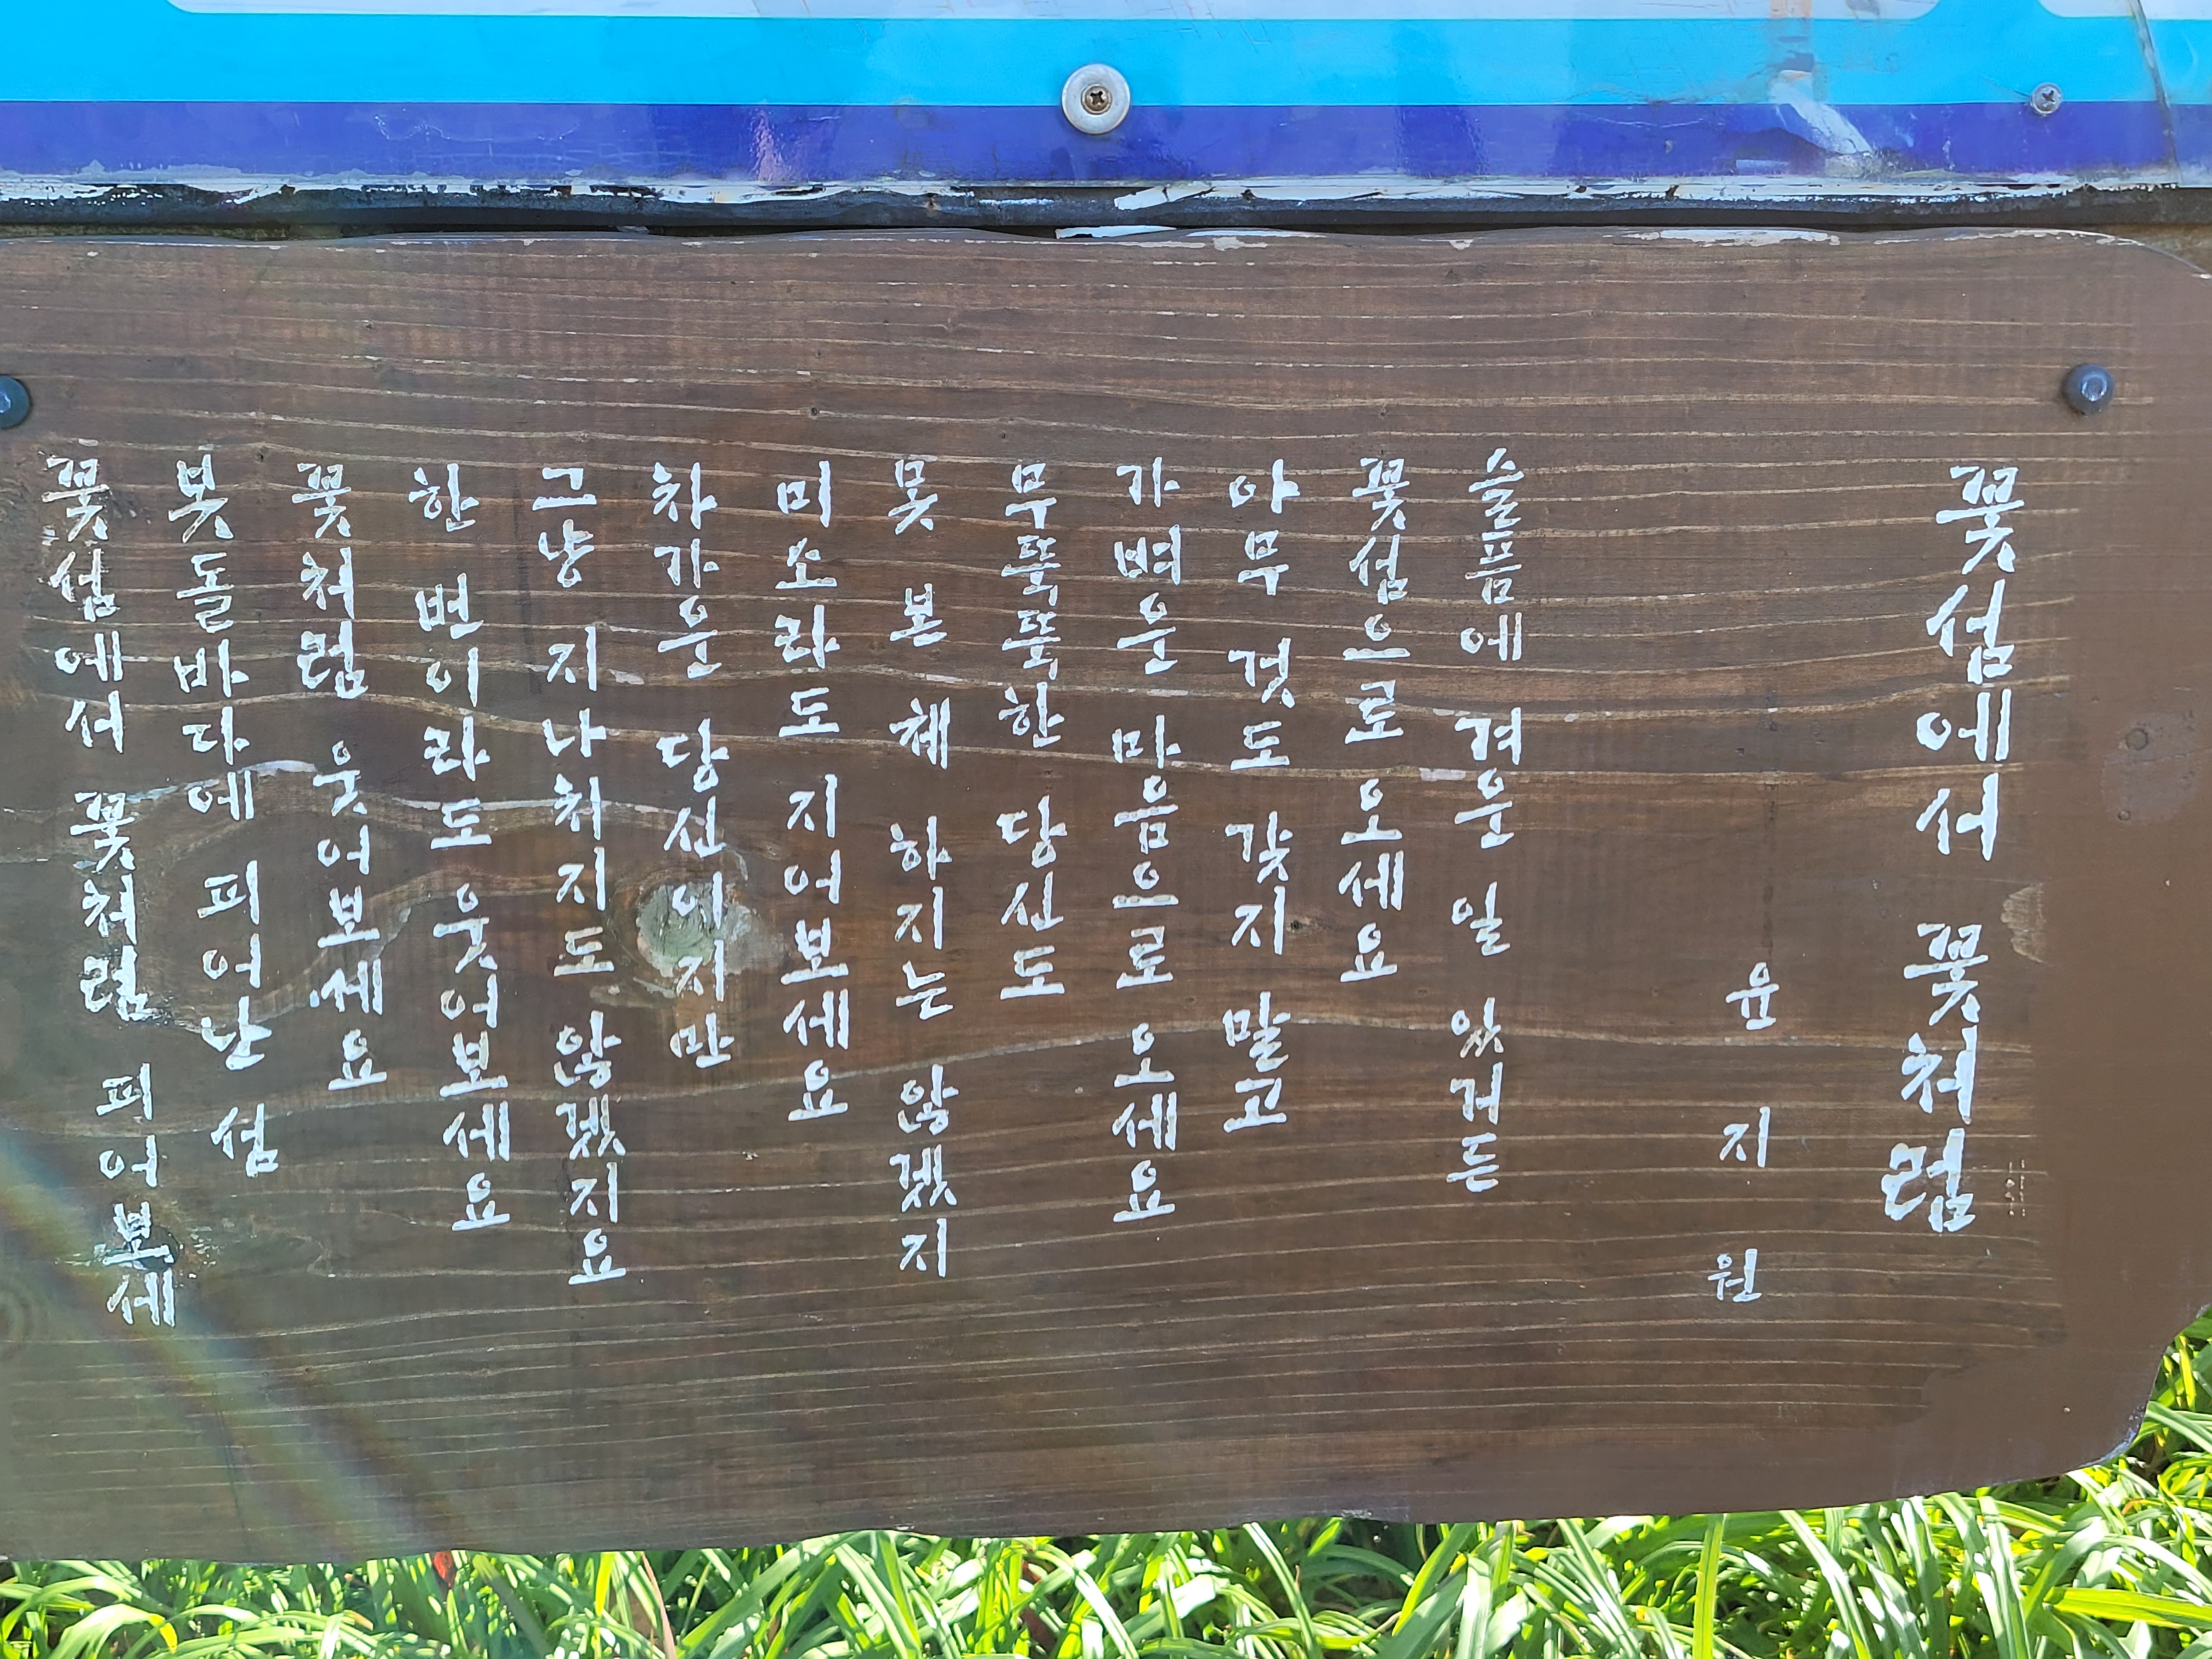 꽃섬에서 꽃처럼
윤지원
슬픔에 겨운 일 있거든
꽃섬으로 오세요
아무 것도 갖지 말고
가벼운 마음으로 오세요
무뚝뚝한 당신도
못 본 체 하지는 않겠지
미소라도 지어보세요
차가운 당신이지만
그냥 지나치지도 않겠지요
한 번이라도 웃어보세요
꽃처럼 웃어보세요
봇돌바다에 피어난 섬
꽃섬에서 꽃처럼 피어보세